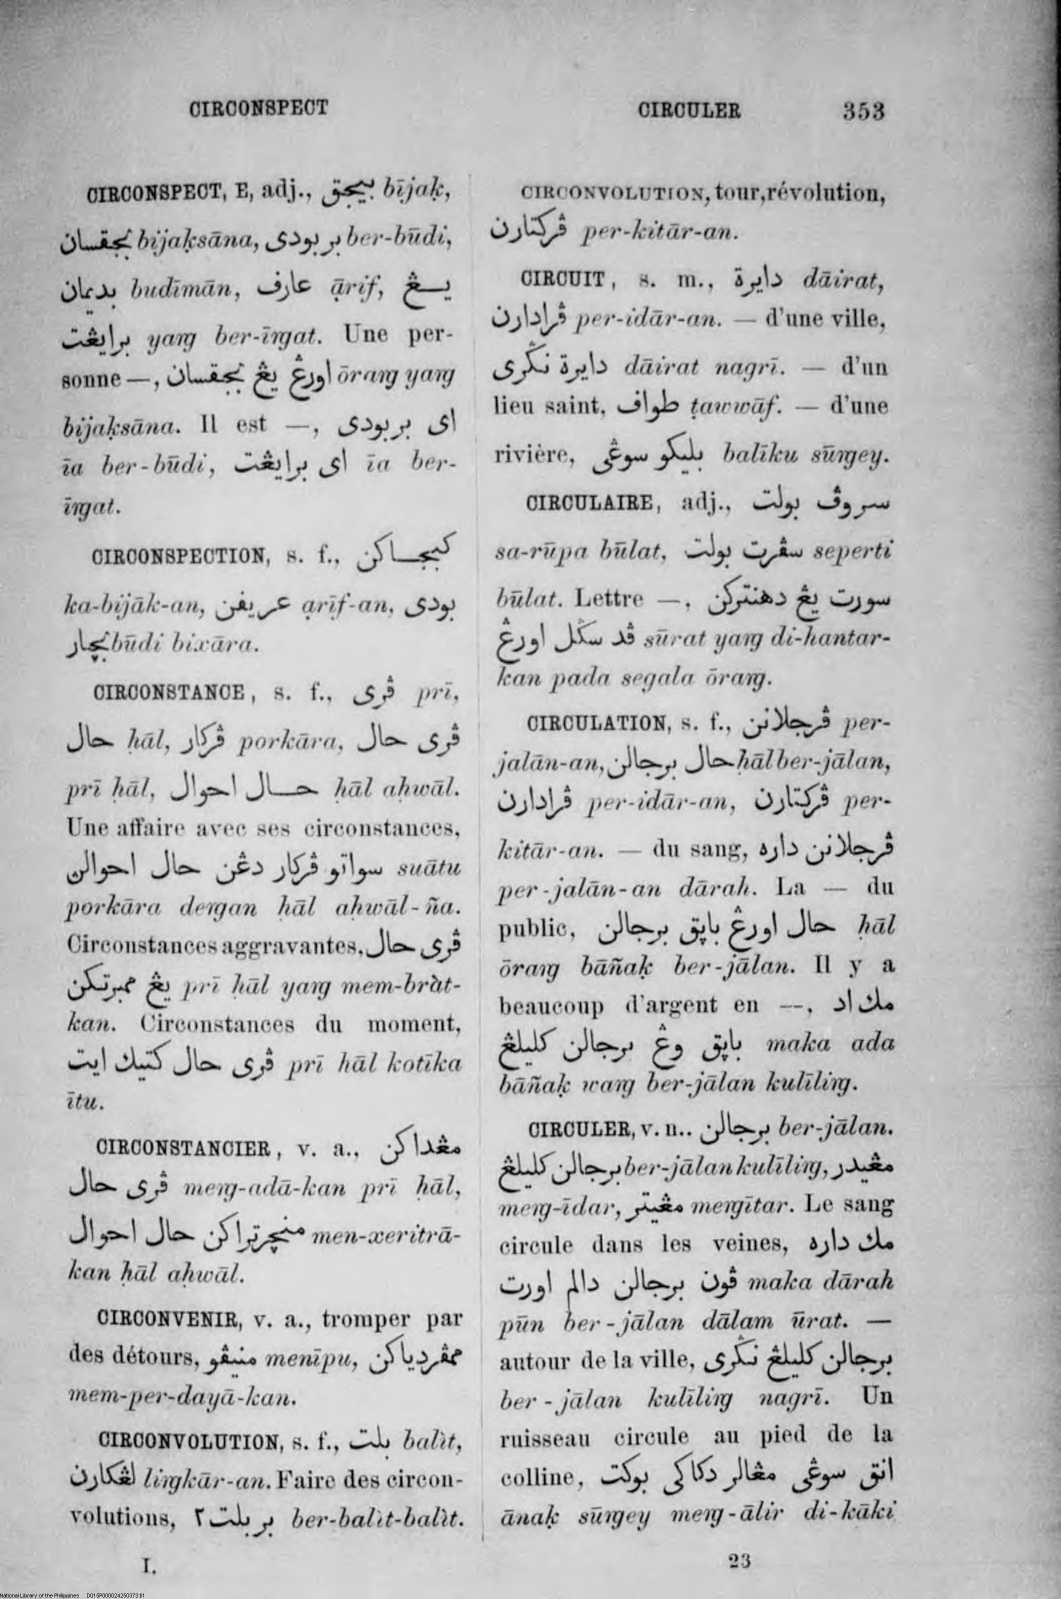 CIRCONSPECT
CIRCULER 353
CIRCONSPECT, E, adj., بيجق bījaḳ,
بجقسان bijaḳsāna, بربودى ber-būdi,
بديمان budīmān, عارف ạ̄rif, يڠ
برايڠت yaṙg ber-īṙgat. Une per-
sonne —, اورڠ يڠ بجقسان ōraṙg yaṙg
bijaḳsāna. Il est —, اى بربودى
īa ber-būdi, اى برايڠت īa ber-
īṙgat.
CIRCONSPECTION, s. f., كبجاكن
ka-bijāk-an, عريفن ạrīf-an, بودى
بچار būdi bixāra.
CIRCONSTANCE, s. f., ڤرى prī,
حال ḥāl, ڤركار porkāra, ڤرى حال
prī ḥāl, حال احوال ḥāl aḥwāl.
Une affaire avec ses circonstances,
سواتو ڤركار دڠن حال احوالن suātu
porkāra deṙgan ḥāl aḥwāl-ña.
Circonstances aggravantes, ڤرى حال
يڠ ممبرتكن prī ḥāl yaṙg mem-bràt-
kan. Circonstances du moment,
ڤرى حال كتيك ايت prī ḥāl kotīka
ītu.
CIRCONSTANCIER, v. a., مڠداكن
ڤرى حال meṙg-adā-kan prī ḥāl,
منچرتراكن حال احوال men-xeritrā-
kan ḥāl aḥwāl.
CIRCONVENIR, v. a., tromper par
des détours, منيڤو menīpu, ممڤردياكن
mem-per-dayā-kan.
CIRCONVOLUTION, s. f., بلت balìt,
لڠكارن liṙgkār-an. Faire des circon-
volutions, بربلت٢ ber-balìt-balìt.
I.
CIRCONVOLUTION, tour, révolution,
ڤركتارن per-kitār-an.
CIRCUIT, s. m., دايرة dāirat,
ڤرادارن per-idār-an. — d'une ville,
دايرة نڬرى dāirat nagrī. — d'un
lieu saint, طواف ṭawwāf. — d'une
rivière, بليكو سوڠى balīku sūṙgey.
CIRCULAIRE, adj., سروڤ بولت
sa-rūpa būlat, سڤرت بولت seperti
būlat. Lettre —, سورت يڠ دهنتركن
ڤد سڬل اورڠ sūrat yaṙg di-hantar-
kan pada segala ōraṙg.
CIRCULATION, s. f., ڤرجلانن per-
jalān-an, حال برجالن ḥāl ber-jālan,
ڤرادارن per-idār-an, ڤركتارن per-
kitār-an. — du sang, ڤرجلانن داره
per-jalān-an dārah. La — du
public, حال اورڠ باڽق برجالن ḥāl
ōraṙg bāñaḳ ber-jālan. Il y a
beaucoup d'argent en —, مك اد
باڽق وڠ برجالن كليلڠ maka ada
bāñaḳ waṙg ber-jālan kulīliṙg.
CIRCULER, v. n., برجالن ber-jālan.
برجالن كليلڠ ber-jālan kulīliṙg, مڠيدر
meṙg-īdar, مڠيتر meṙgītar. Le sang
circule dans les veines, مك داره
ڤون برجالن دالم اورت maka dārah
pūn ber-jālan dālam ūrat. —
autour de la ville, برجالن كليلڠ نڬرى
ber-jālan kulīliṙg nagrī. Un
ruisseau circule au pied de la
colline, انق سوڠى مڠالر دكاكى بوكت
ānaḳ sūṙgey meṙg-ālir di-kāki
23
National Library of the Philippines